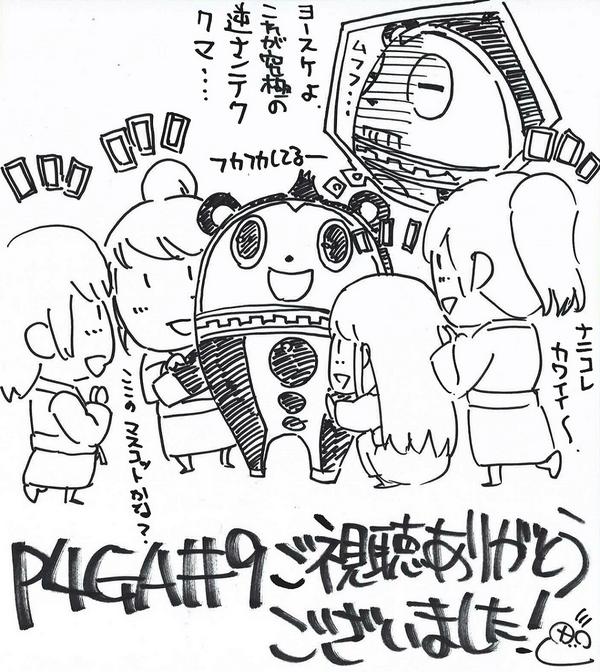 ヨースケよ
これが究極の
逆ナンテク
クマ・・・・
ムフフ・・・
フカフカしてるー
ナニコレ
カワイイ〜
ここのマスコットかな？
P4GA#9ご視聴ありがとう
ございました！